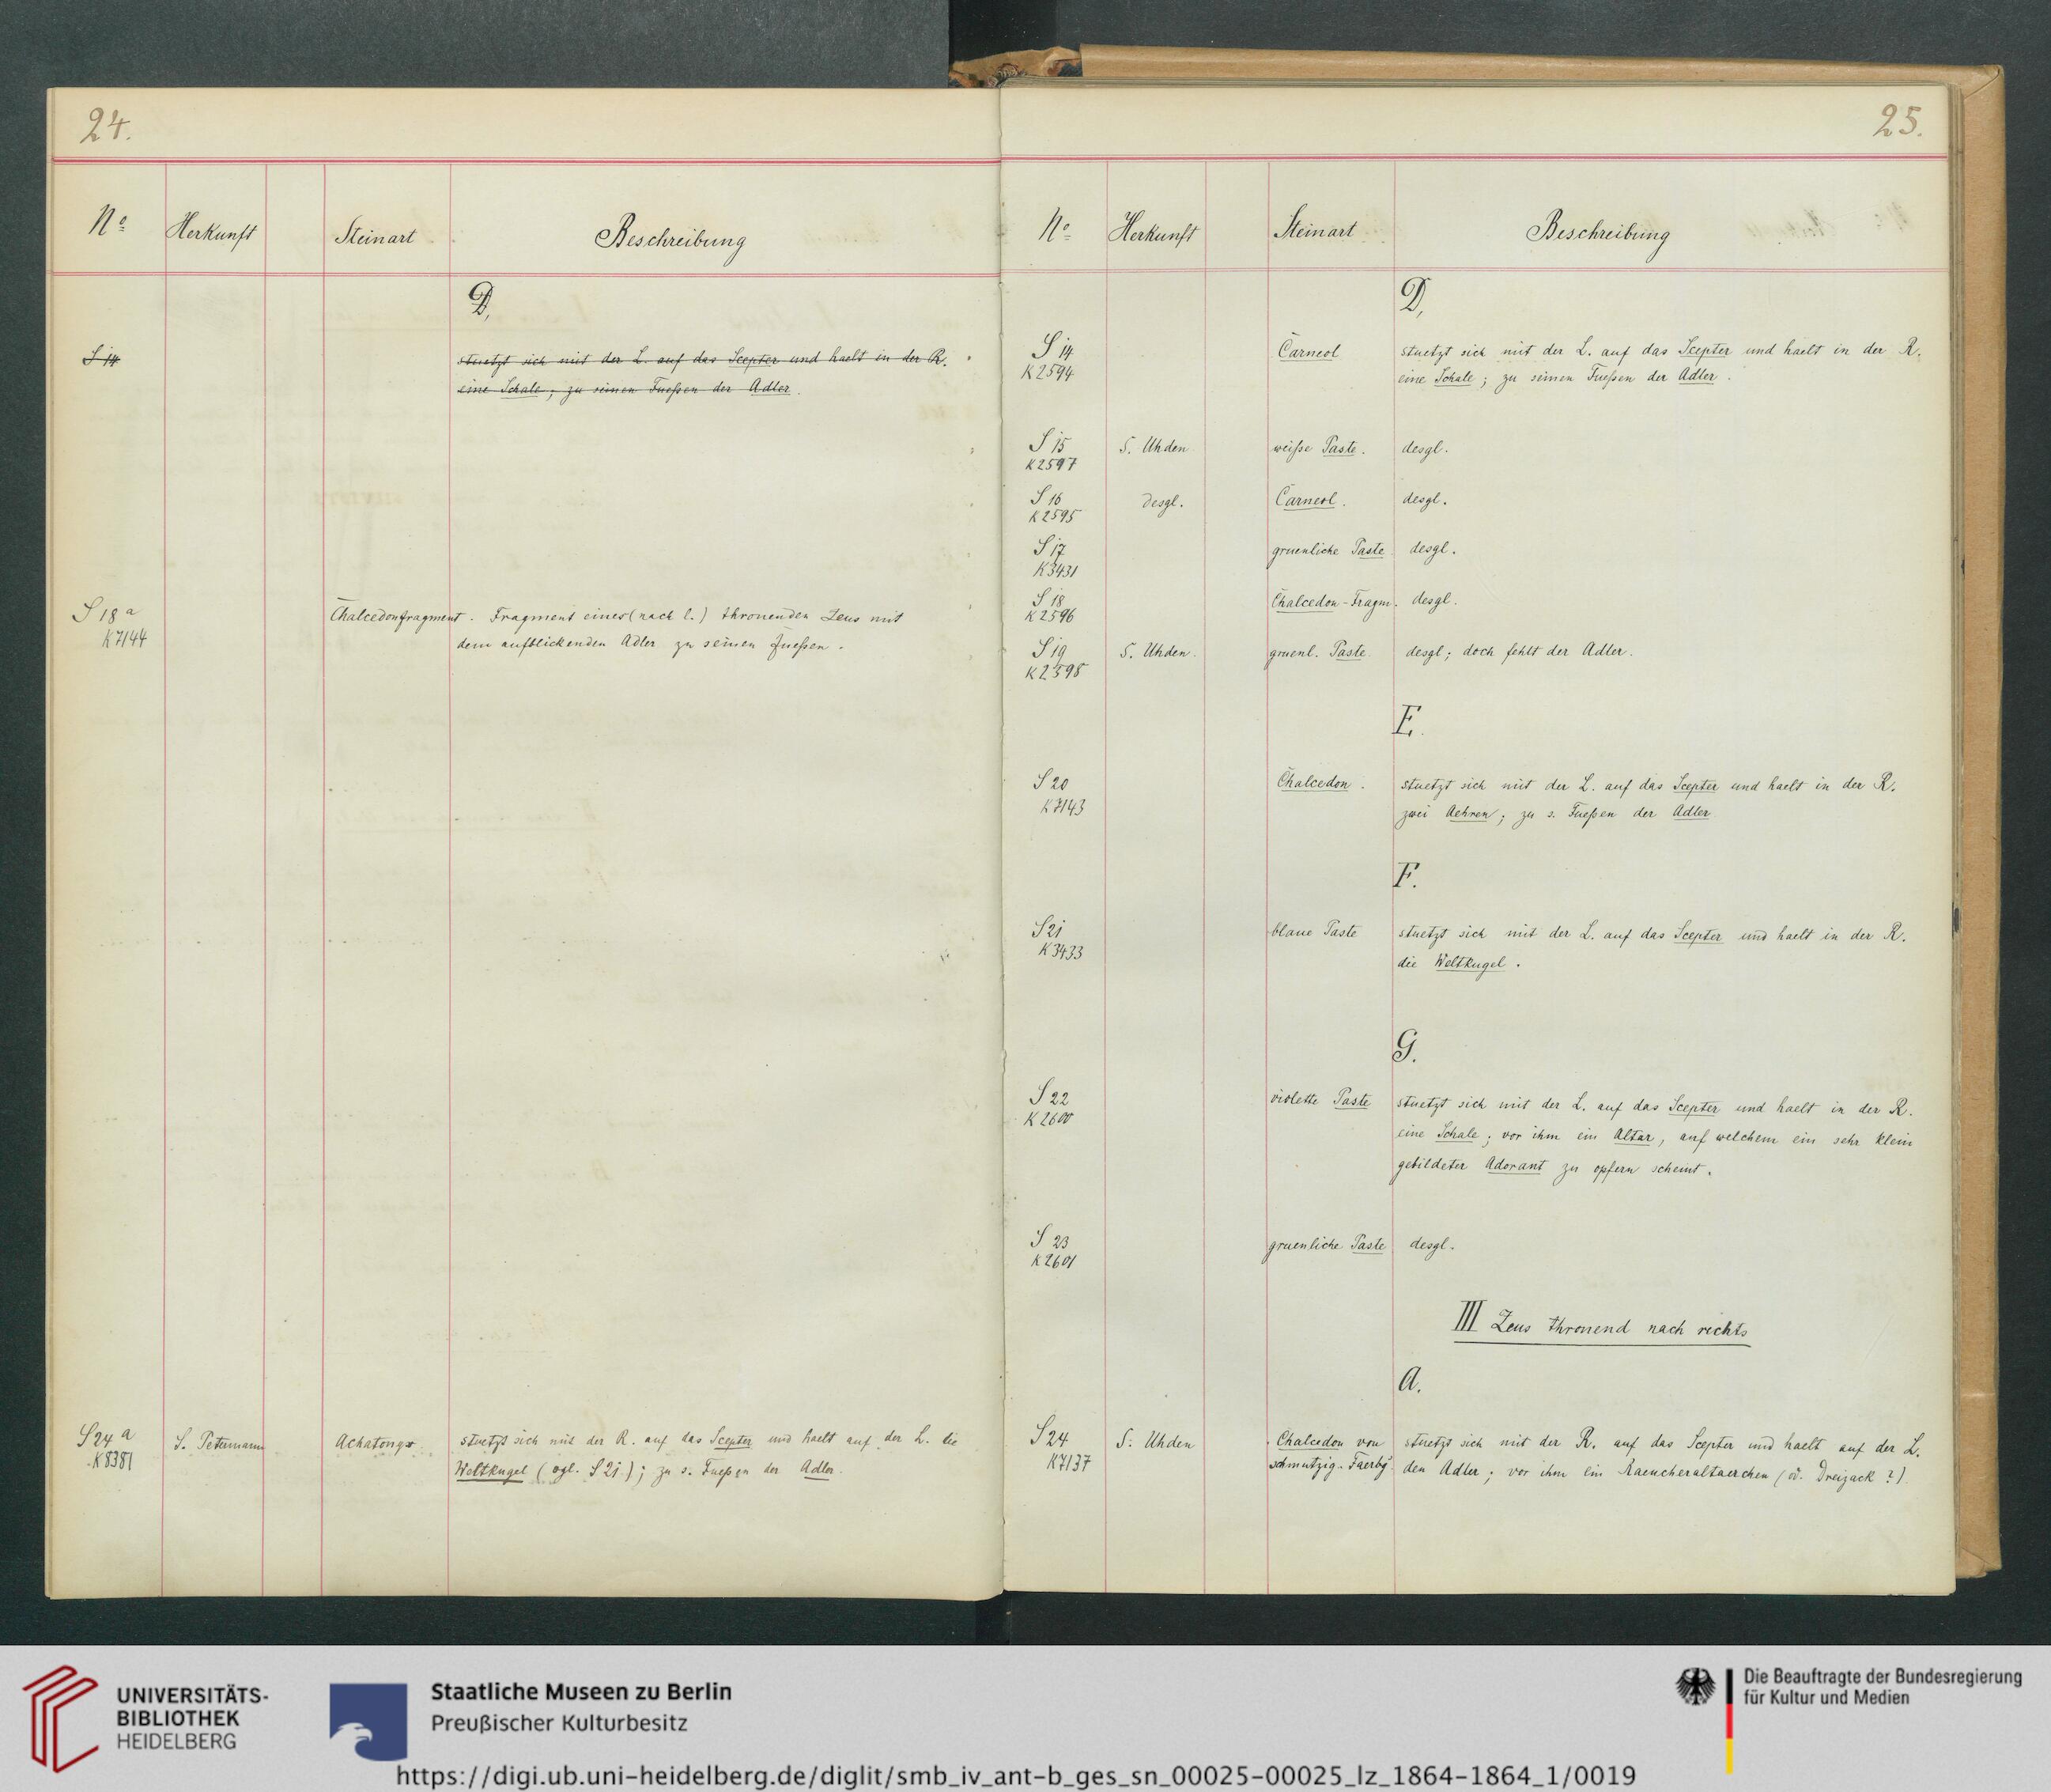 24.
No Herkunft Steinart Beschreibung
D,
S 14 stuetzt sich mit der L. auf das Scepter und haelt in der R.
eine Schale; zu seinen Fueßen der Adler.
S 18 a Chalcedonfragment. Fragment eines (nach l.) thronenden Zeus mit
K7144 dem aufblickenden Adler zu seinen Fueßen.
S 24 a S. Petermann Achatongx. stuetzt sich mit der R. auf das Scepter und haelt auf der L. die
K8381 Weltkugel (vgl. S 21.); zu s. Fueßen der Adler.
25.
No Herkunft Steinart Beschreibung
D,
S 14 Carneol stuetzt sich mit der L. auf das Scepter und haelt in der R.
K2594 eine Schale; zu seinen Fueßen der Adler.
S 15 S. Uhden weiße Paste. desgl.
K2597
S 16 desgl. Carneol. desgl.
K2595
S 17 gruenliche Paste desgl.
K3431
S 18 Chalcedon-Fragm. desgl.
K2596
S 19 S. Uhden. gruenl. Paste desgl; doch fehlt der Adler.
K2598
E.
S 20 Chalcedon. stuetzt sich mit der L. auf das Scepter und haelt in der R.
K7143 zwei Aehren; zu s. Fueßen der Adler
F.
S 21 blaue Paste stuetzt sich mit der L. auf das Scepter und haelt in der R.
K3433 die Weltkugel.
G.
S 22 violette Paste stuetzt sich mit der L. auf das Scepter und haelt in der R.
K2600 eine Schale; vor ihm ein Altar, auf welchem ein sehr klein
gebildeter Adorant zu opfern scheint.
S 23 gruenliche Paste desgl.
K2601
III Zeus thronend nach rechts
A.
S 24 S. Uhden Chalcedon von stuetzt sich mit der R. auf das Scepter und haelt auf der L.
K7137 schmutzig. Faerbg. den Adler; vor ihm ein Raeucheraltaerchen (od. Dreizack?)
UNIVERSITÄTS-
BIBLIOTHEK
HEIDELBERG
Staatliche Museen zu Berlin
Preußischer Kulturbesitz
Die Beauftragte der Bundesregierung
für Kultur und Medien
https://digi.ub.uni-heidelberg.de/diglit/smb_iv_ant-b_ges_sn_00025-00025_lz_1864-1864_1/0019